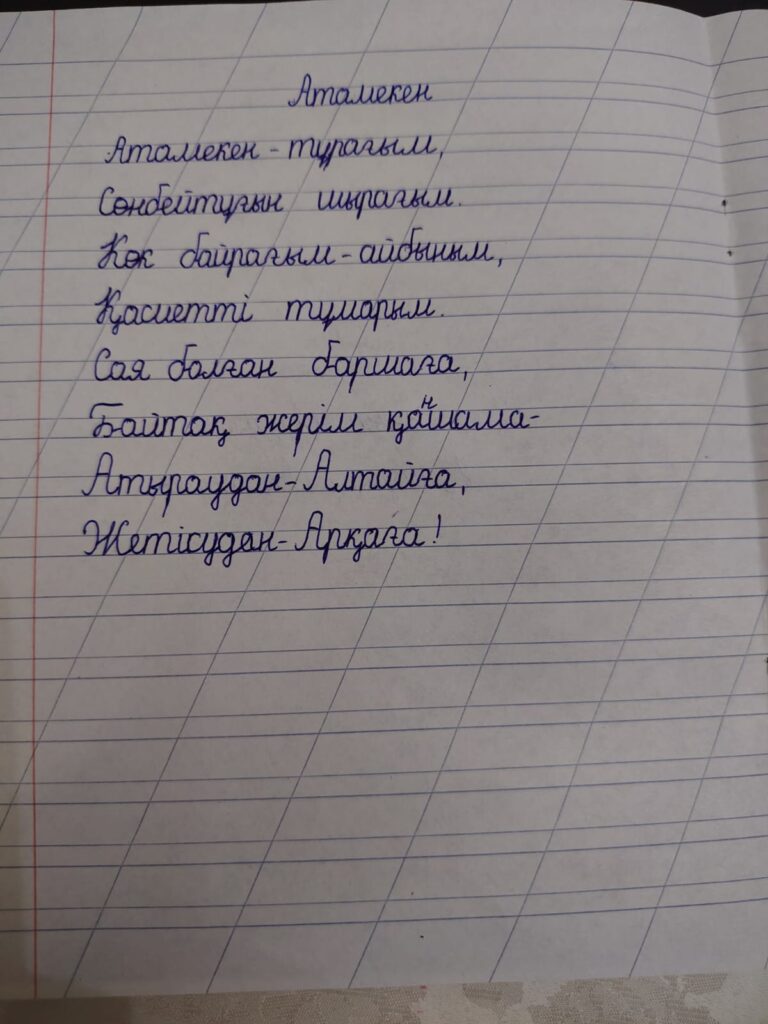 Атамекен
Атамекен - тұрағым,
Сөнбейтұғын шырағым.
Көк байрағым - айбыным,
Қасиетті тұмарым.
Сая болған баршаға,
Байтақ жерім қаншама-
Атыраудан-Алтайға,
Жетісудан-Арқаға!